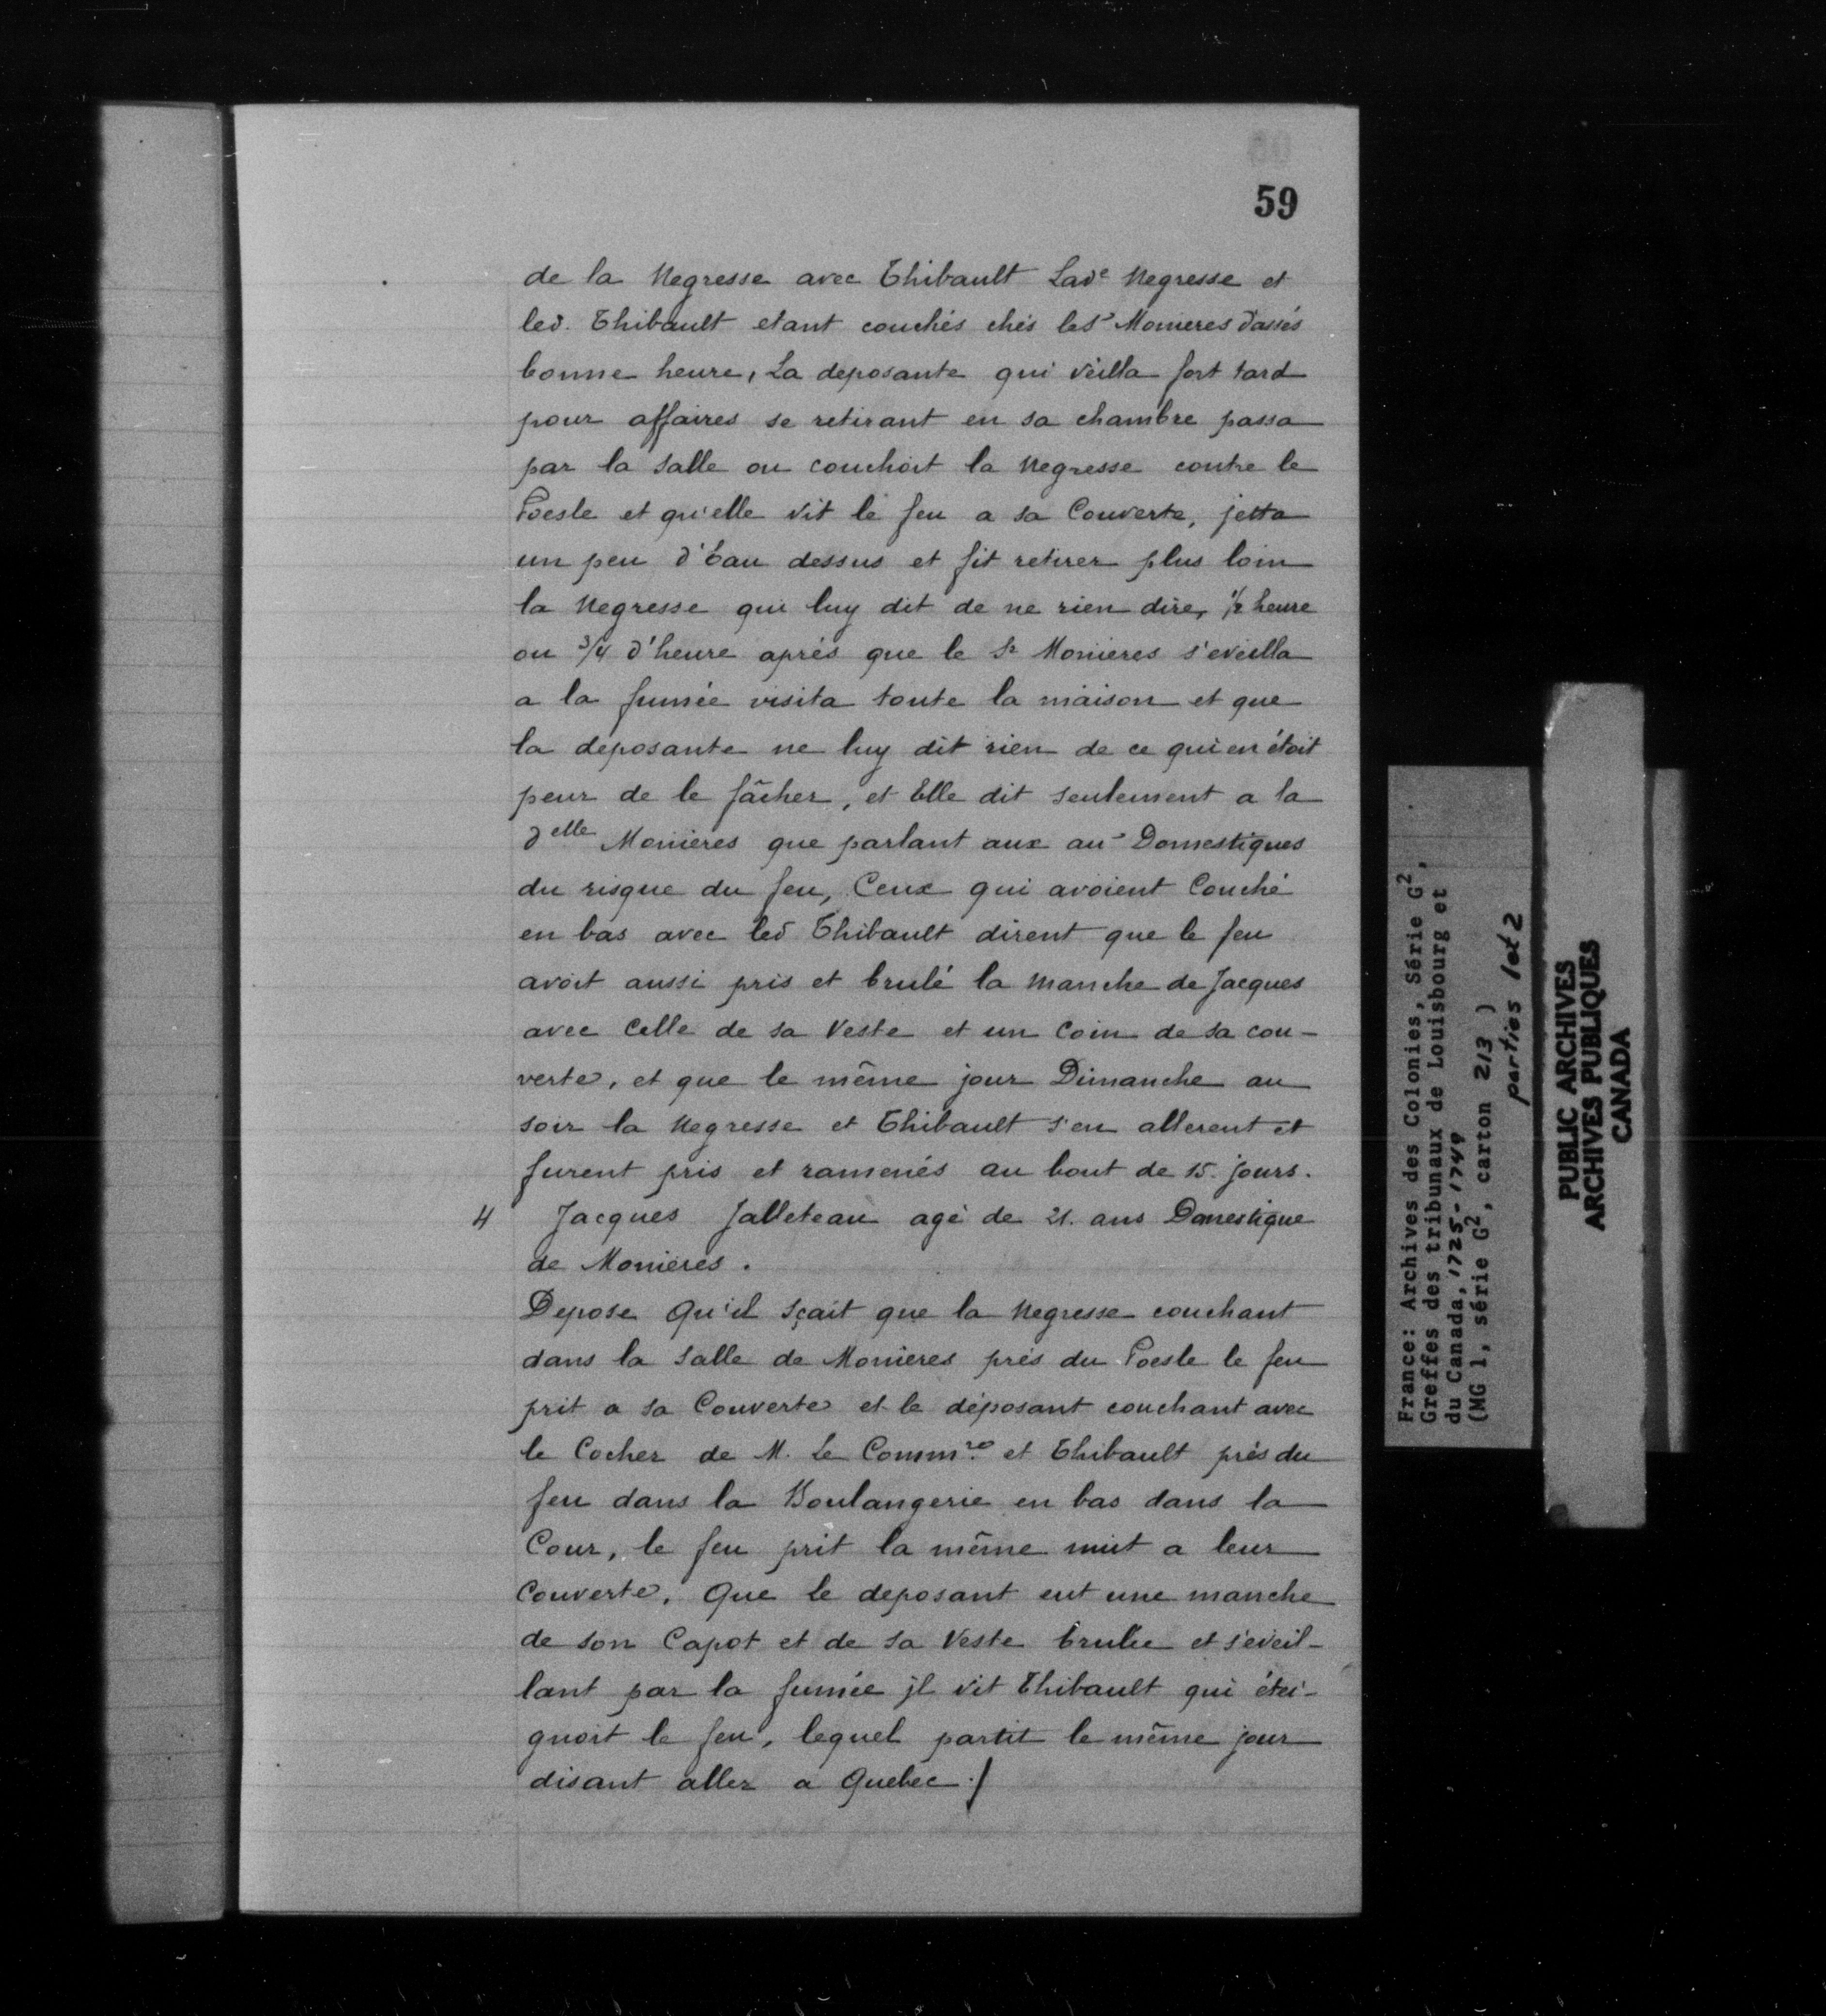 59
de la Negresse avec Thibault Lad^e Negresse et
led. Thibault etant couchés chés le S^r Monieres d'assés
bonne heure, La deposante qui veilla fort tard
pour affaires se retirant en sa chambre passa
par la Salle ou couchoit la Negresse contre le
Poesle et qu'elle vit le feu a sa Couverte, jetta
un peu d'Eau dessus et fit retirer plus loin
la Negresse qui luy dit de ne rien dire, 1/2 heure
ou 3/4 d'heure aprés que le Sr Monieres s'eveilla
a la fumée visita toute la maison et que
la deposante ne luy dit rien de ce qui en étoit
peur de le fâcher, et Elle dit seulement a la
d^elle Monieres que parlant aux au^s Domestiques
du risque du feu, Ceux qui avoient Couché
en bas avec led Thibault dirent que le feu
avoit aussi pris et brulé la manche de Jacques
avec Celle de sa Veste et un Coin de sa cou-
verte, et que le même jour Dimanche au
soir la Negresse et Thibault s'en allerent et
furent pris et ramenés au bout de 15. jours.
4 Jacques Jalleteau agé de 21. ans Domestique
de Monieres.
Depose Qu'il sçait que la Negresse couchant
dans la Salle de Monieres prés du Poesle le feu
prit a sa Couverte et le déposant couchant avec
le Cocher de M. Le Comm^re et Thibault près du
feu dans la Boulangerie en bas dans la
Cour, le feu prit la même nuit a leur
Couverte, Que le deposant eut une manche
de son Capot et de sa Veste brulée et s'eveil-
lant par la fumée jl vit Thibault qui étei-
gnoit le feu, lequel partit le même jour
disant aller a Quebec ./
France: Archives des Colonies, Série G²,
Greffes des tribunaux de Louisbourg et
du Canada, 1725-1749
(MG 1, série G², carton 213 )
parties 1 et 2
PUBLIC ARCHIVES
ARCHIVES PUBLIQUES
CANADA